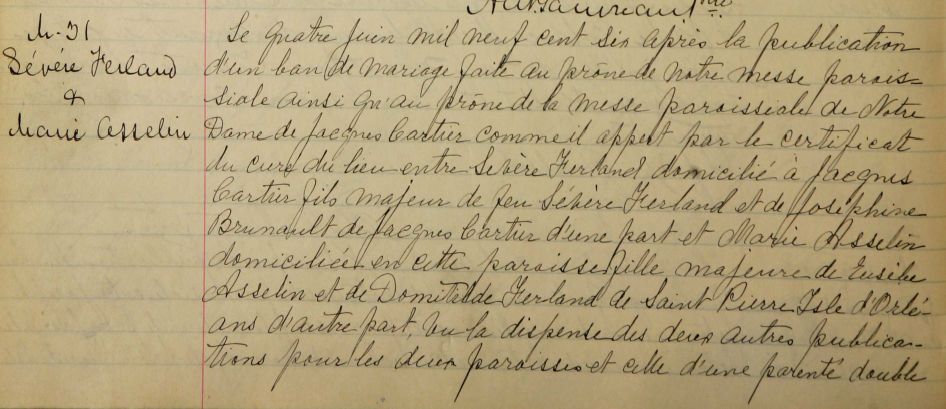 M-31
Sévère Ferland
&
Marie Asselin
Le quatre juin mil neuf cent six après la publication
d'un ban de mariage faite au prône de notre messe parois=
siale ainsi qu'au prône de la messe paroissiale de Notre
Dame de Jacques Cartier comme il appert par le certificat
du curé du lieu entre Sévère Ferland domicilié à Jacques
Cartier fils majeur de feu Sévère Ferland et de Joséphine
Brunault de Jacques Cartier d'une part et Marie Asselin
domiciliée en cette paroisse fille majeure de Eusèbe
Asselin et de Domitilde Ferland de Saint Pierre Isle d'Orlé-
ans d'autre part, vu la dispense des deux autres publica-
tions pour les deux paroisses et celle d'une parenté double